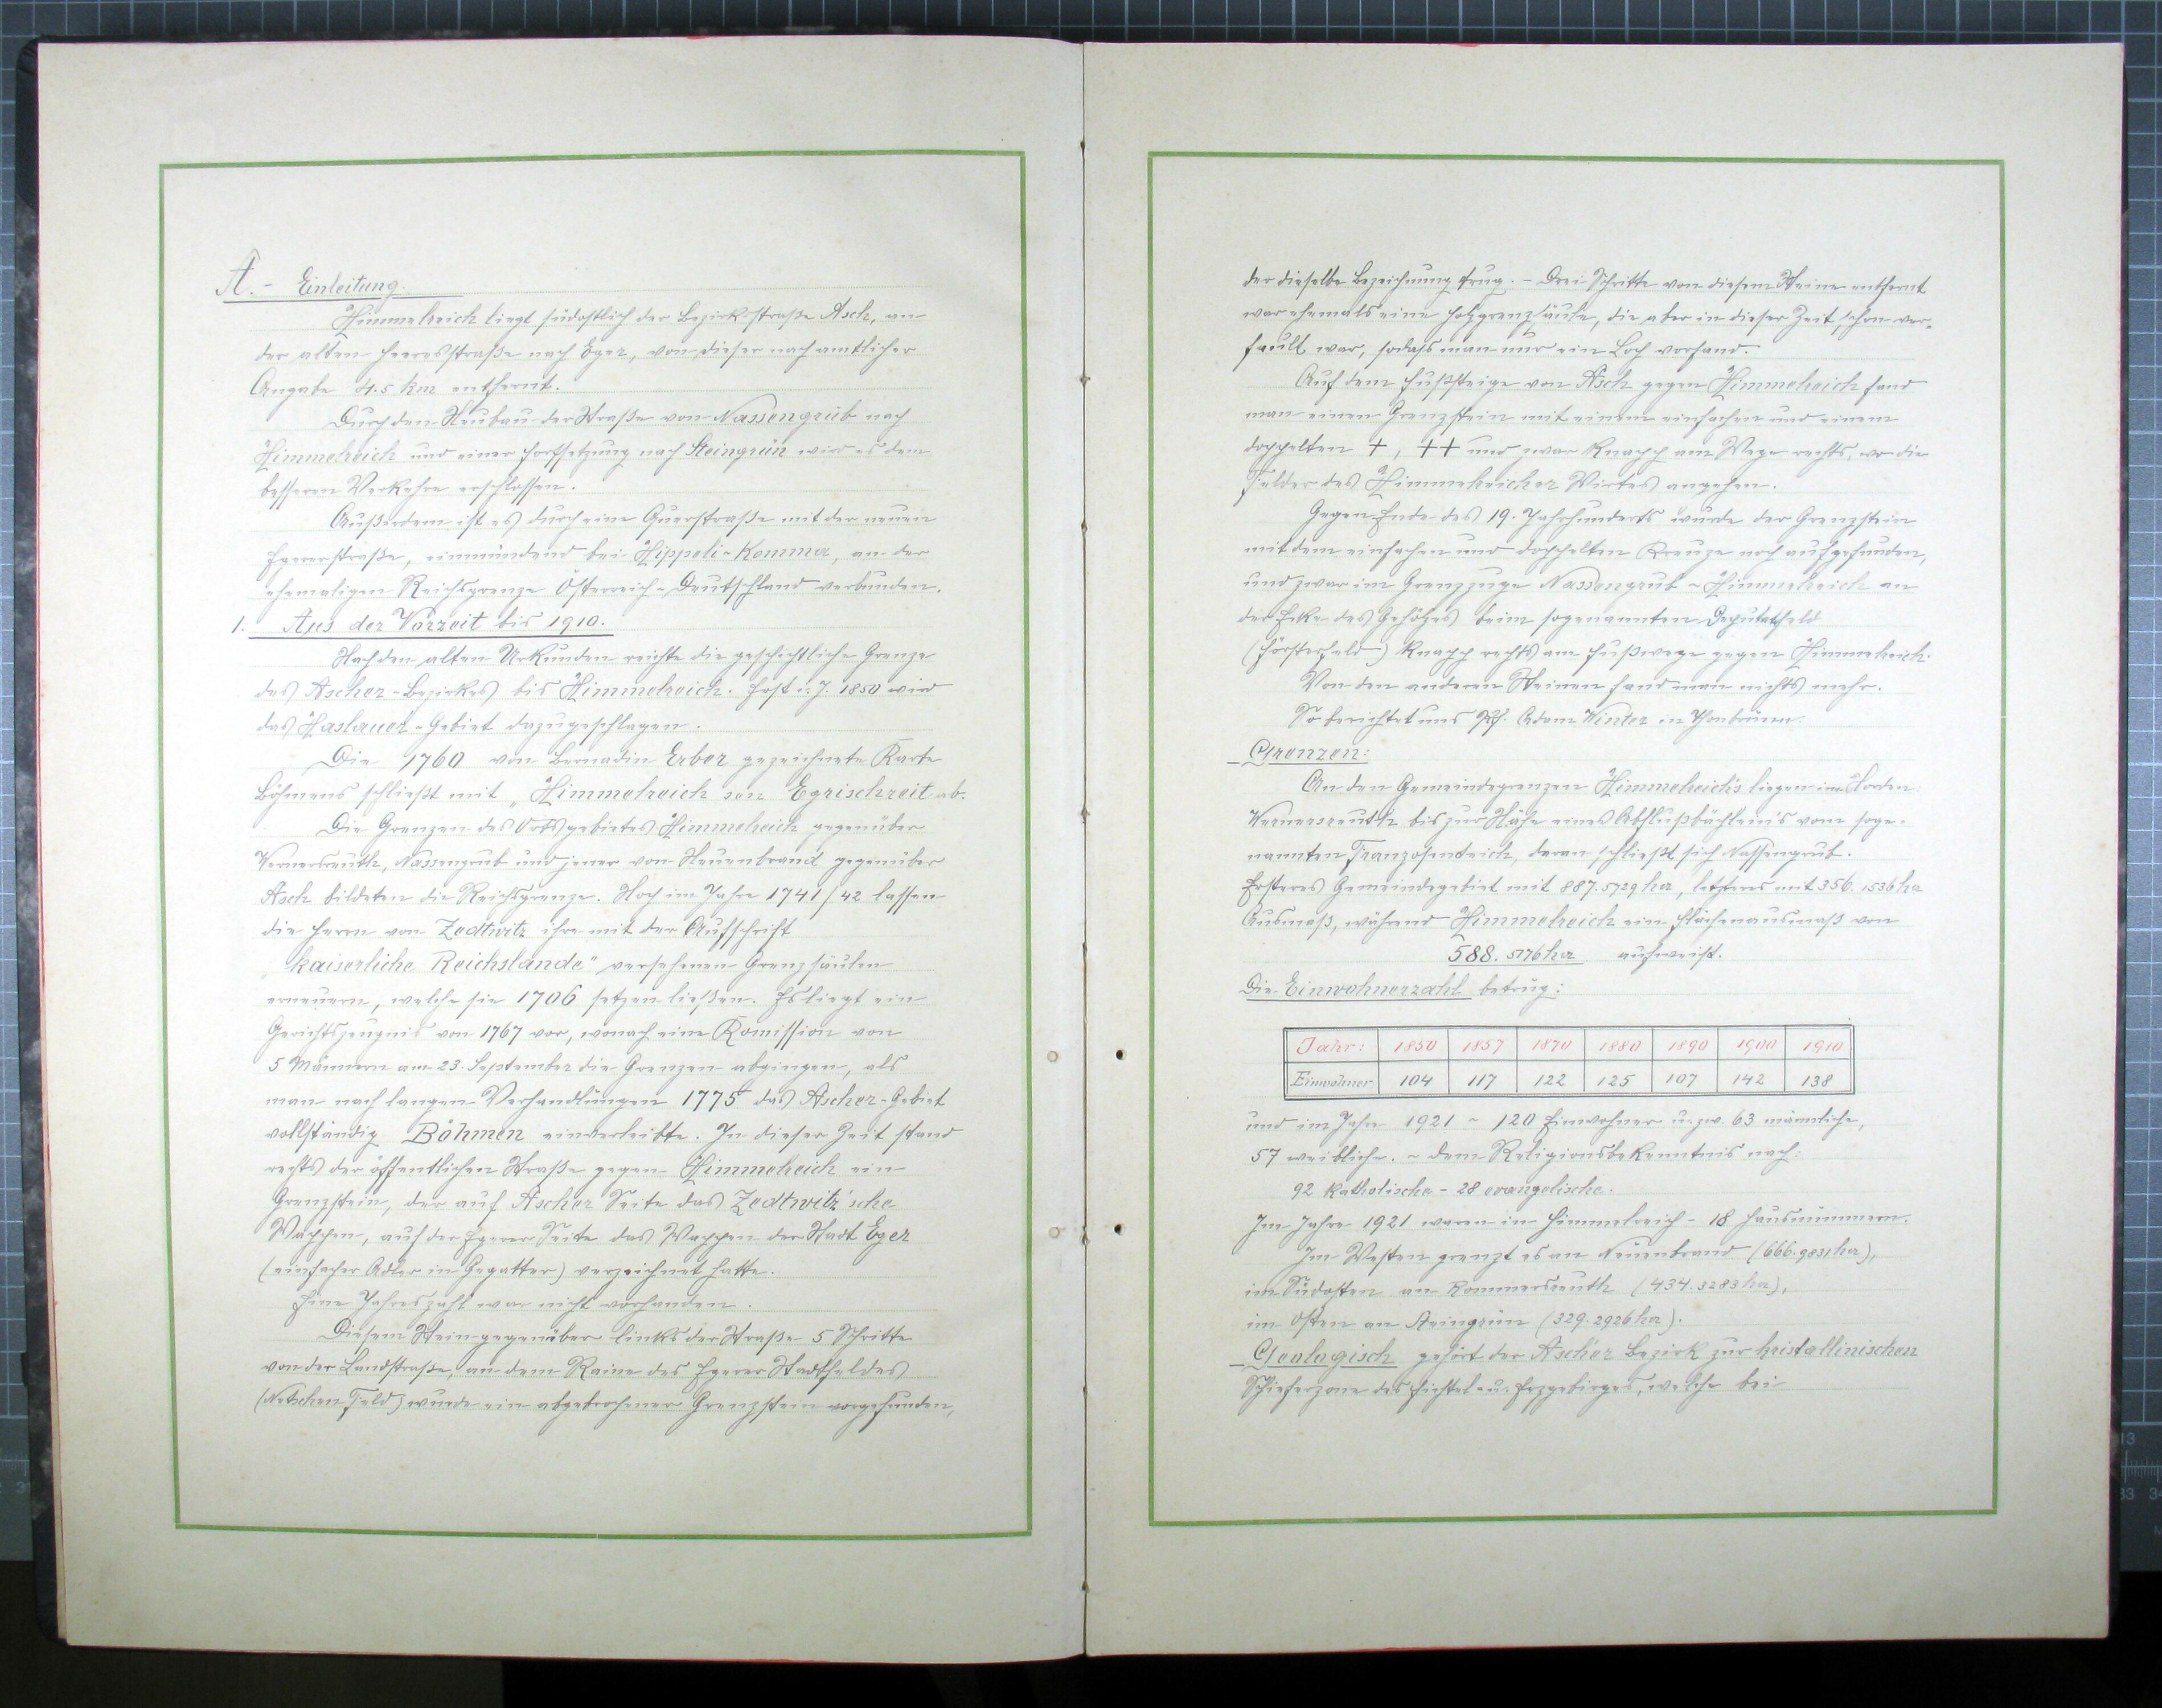 A.- Einleitung.
Himmelreich liegt südostlich der Bezirksstraße Asch, an
der alten Heeresstraße nach Eger, von dieser nach amtlicher
Angabe 4.5 km entfernt.
Durch den Neubau der Straße von Nassengrub nach
Himmelreich und einer Fortsetzung nach Steingrün wird es dem
besseren Verkehre erschlossen.
Außerdem ist es durch eine Querstraße mit der neuen
Egererstraße, einmündend bei Hippeli-Komma, an der
ehemaligen Reichsgrenze Österreich-Deutschland verbunden.
1. Aus der Vorzeit bis 1910.
Nach den alten Urkunden reichte die geschichtliche Grenze
des Ascher-Bezirkes bis Himmelreich. Erst i. J. 1850 wird
das Haslauer-Gebiet dazugeschlagen.
Die 1760 von Bernadin Erber gezeichnete Karte
Böhmens schließt mit „Himmelreich sen Egrischreit ab.
Die Grenzen des Ortsgebietes Himmelreich gegenüber
Wernersreuth, Nassengrub und jener von Neuenbrand gegenüber
Asch bildeten die Reichsgrenze. Noch im Jahre 1741/42 lassen
die Herrn von Zedtwitz ihre mit der Aufschrift
„kaiserliche Reichslande" versehenen Grenzsäulen
erneuern, welche sie 1706 setzen ließen. Es liegt ein
Gerichtszeugnis von 1767 vor, wonach eine Komission von
5 Männern am 23. September die Grenzen abgingen, als
man nach langen Verhandlungen 1775 das Ascher-Gebiet
vollständig Böhmen einverleibte. In dieser Zeit stand
rechts der öffentlichen Straße gegen Himmelreich ein
Grenzstein, der auf Ascher Seite das Zedtwitz'sche
Wappen, auf der Egerer Seite das Wappen der Stadt Eger
(einfacher Adler in Gegatter) verzeichnet hatte.
Eine Jahreszahl war nicht vorhanden.
Diesem Stein gegenüber links der Straße 5 Schritte
von der Landstraße, an dem Raine des Egerer Stadtfeldes
(Netschen Feld) wurde ein abgebrochener Grenzstein vorgefunden,
der dieselbe Bezeichnung trug. - Drei Schritte von diesem Steine entfernt
war ehemals eine Holzgrenzsäule, die aber in dieser Zeit schon ver-
fault war, sodass man nur ein Loch vorfand.
Auf dem Fußsteige von Asch gegen Himmelreich fand
man einen Grenzstein mit einem einfachen und einem
doppelten +, ++ und zwar knapp am Wege rechts, wo die
Felder des Himmelreicher Wirtes angehen.
Gegen Ende des 19. Jahrhunderts wurde der Grenzstein
mit dem einfachen und doppelten Kreuze noch aufgefunden,
und zwar im Grenzzuge Nassengrub - Himmelreich an
der Ecke des Gehölzes beim sogenannten Deputatfeld
(Försterfeld) knapp rechts am Fußwege gegen Himmelreich.
Von den anderen Steinen fand man nichts mehr.
So berichtet uns Adam Winter in Thonbrunn.
Grenzen:
An den Gemeindegrenzen Himmelreich's liegen im Norden:
Wernersreuth bis zur Nähe eines Abflußbächlein's vom soge-
nannten Franzosenteich, daran schließt sich Nassengrub.
Ersteres Gemeindegebiet mit 887.5729 ha, letzteres mit 356.1536 ha
Ausmaß, während Himmelreich ein Flächenausmaß von
588.5176 ha aufweist.
Die Einwohnerzahl betrug:
Jahr: 1850 1857 1870 1880 1890 1900 1910
Einwohner 104 117 122 125 107 142 138
und im Jahre 1921 - 120 Einwohner u. zw. 63 männliche,
57 weibliche. - dem Religionsbekenntnis nach:
92 katholische - 28 evangelische.
Im Jahre 1921 waren in Himmelreich - 18 Hausnummern.
Im Westen grenzt es an Neuenbrand (666.9831 ha),
im Südosten an Rommersreuth (434.3283 ha),
im Osten an Steingrün (329.2926 ha).
Geologisch gehört der Ascher Bezirk zur kristallinischen
Schieferzone des Fichtel- u. Erzgebirges, welche bei